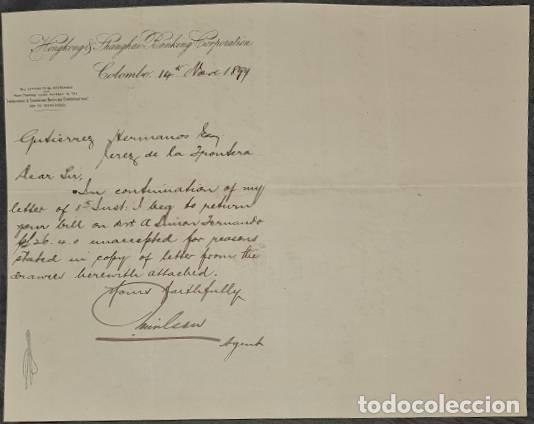 Hongkong & Shanghai Banking Corporation
Colombo, 14th 1899
Gutiérrez Hermanos Esq
Jerez de la Frontera
Dear Sir,
In continuation of my
letter of 8th Inst. I beg to return
your bill on A Simon Fernando
£26.4.0 unaccepted for reasons
stated in copy of letter from the
drawee herewith attached.
Yours faithfully
Agent
todocoleccion